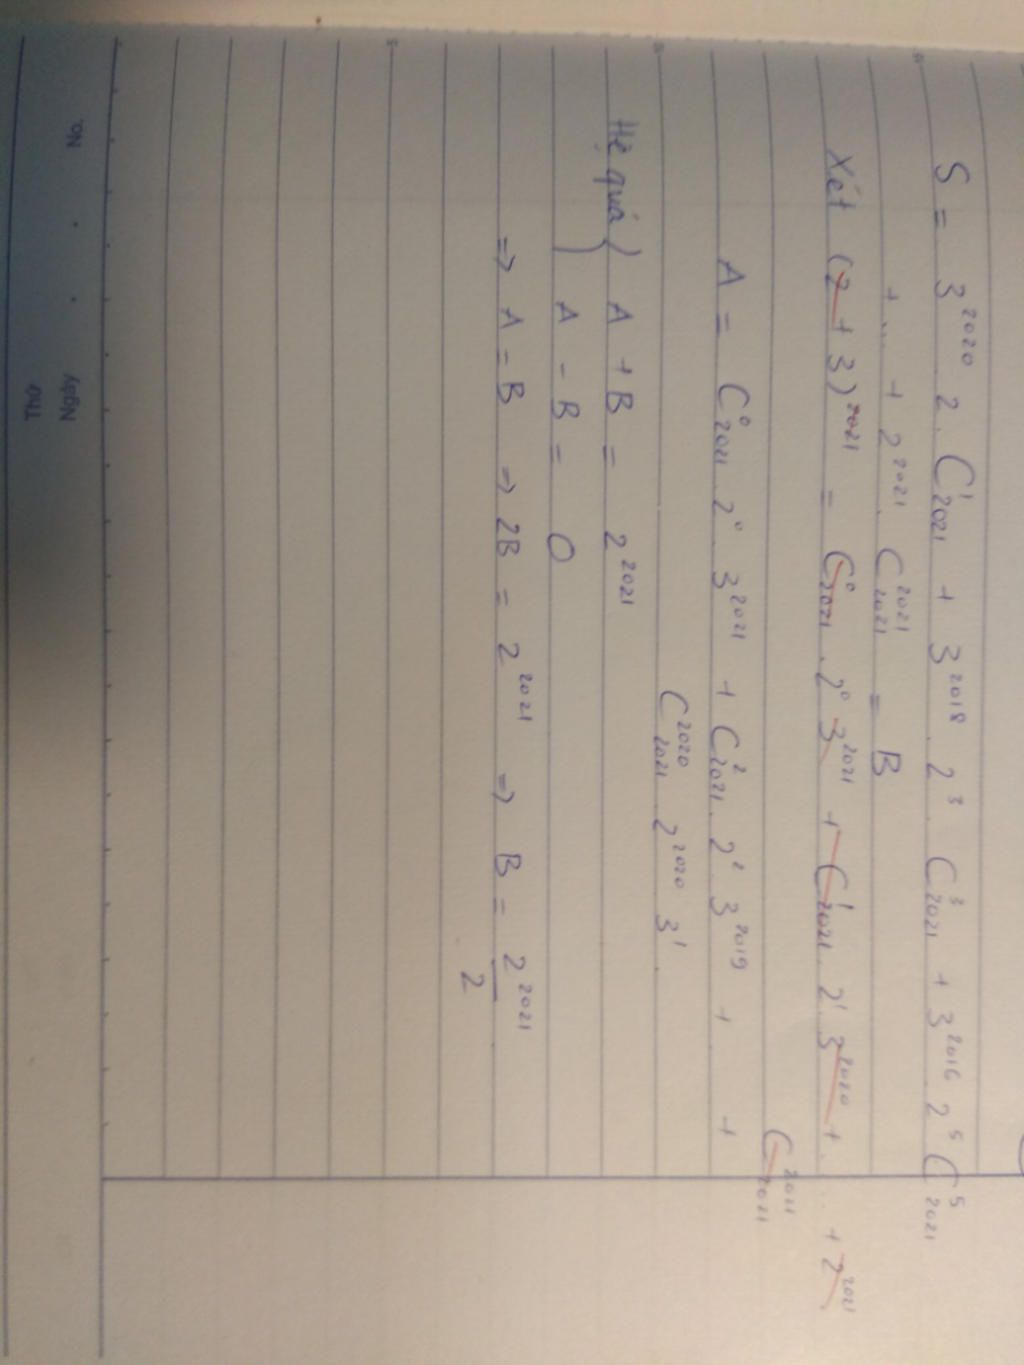 S = 3^2020 2. C^1_2021 + 3^2018. 2^3. C^3_2021 + 3^2016 2^5 C^5_2021
+ ... + 2^2021. C^2021_2021 = B
Xét (2 + 3)^2021 = C^0_2021. 2^0 3^2021 + C^1_2021. 2^1 3^2020 + ... + 2^2021
C^2021_2021
A = C^0_2021 2^0. 3^2021 + C^2_2021. 2^2. 3^2019 + . +
C^2020_2021 2^2020 3^1.
Hệ quả { A + B = 2^2021
A - B = 0
=> A = B => 2B = 2^2021 => B = 2^2021/2
No.
Ngày
Thứ